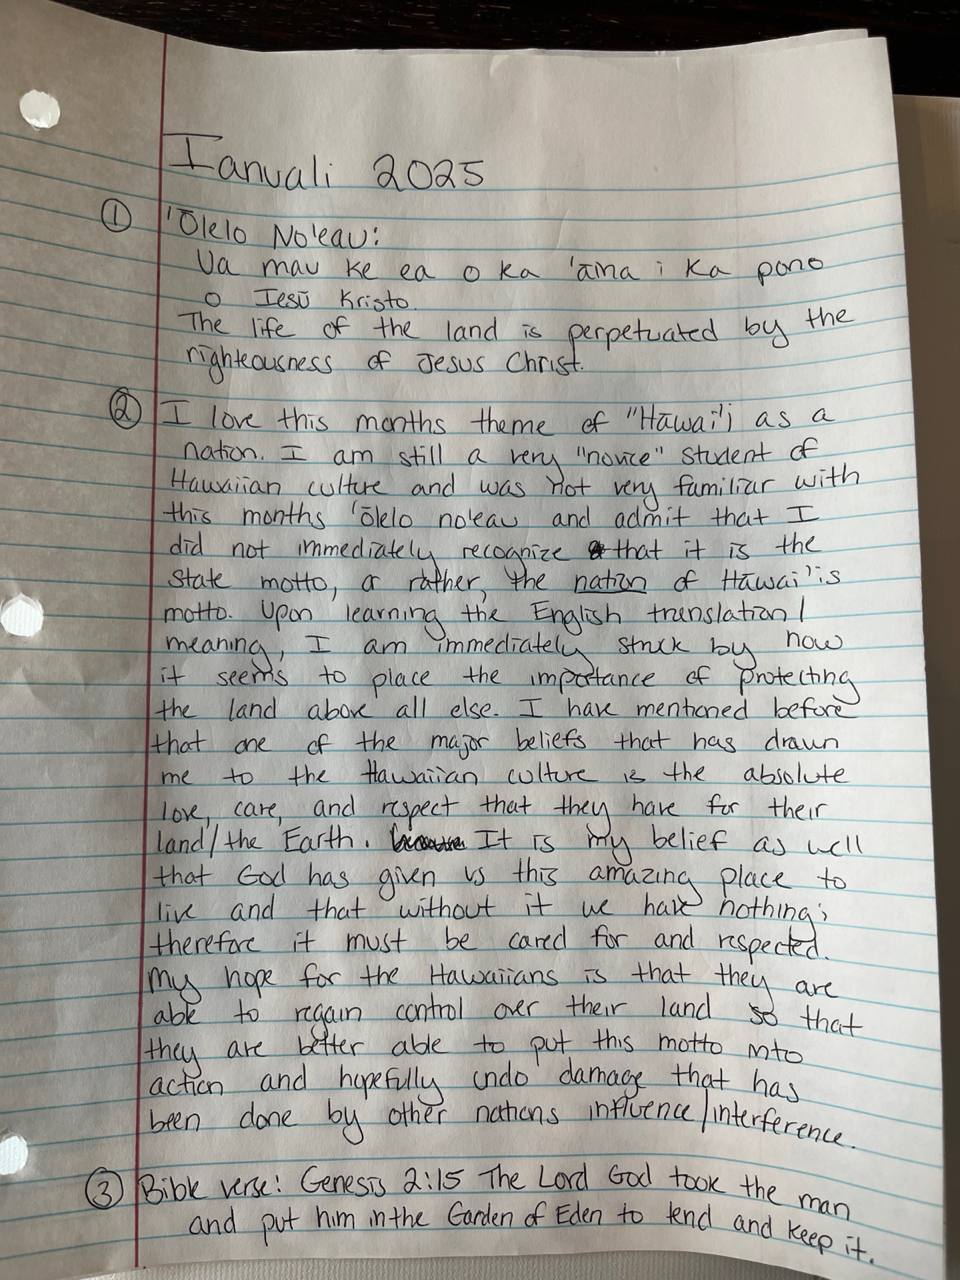 Ianuali 2025
① 'Ōlelo No'eau:
Ua mau ke ea o ka 'āina i ka pono
o Iesū Kristo.
The life of the land is perpetuated by the
righteousness of Jesus Christ.
② I love this months theme of "Hāwai'i as a
nation. I am still a very "novice" student of
Hawaiian culture and was not very familiar with
this months 'ōlelo no'eau and admit that I
did not immediately recognize that it is the
state motto, or rather, the nation of Hāwai'is
motto. Upon learning the English translation/
meaning, I am immediately struck by how
it seems to place the importance of protecting
the land above all else. I have mentioned before
that one of the major beliefs that has drawn
me to the Hawaiian culture is the absolute
love, care, and respect that they have for their
land/the Earth. It is my belief as well
that God has given us this amazing place to
live and that without it we have nothing;
therefore it must be cared for and respected.
My hope for the Hawaiians is that they are
able to regain control over their land so that
they are better able to put this motto into
action and hopefully undo damage that has
been done by other nations influence/interference.
③ Bible verse: Genesis 2:15 The Lord God took the man
and put him in the Garden of Eden to tend and keep it.